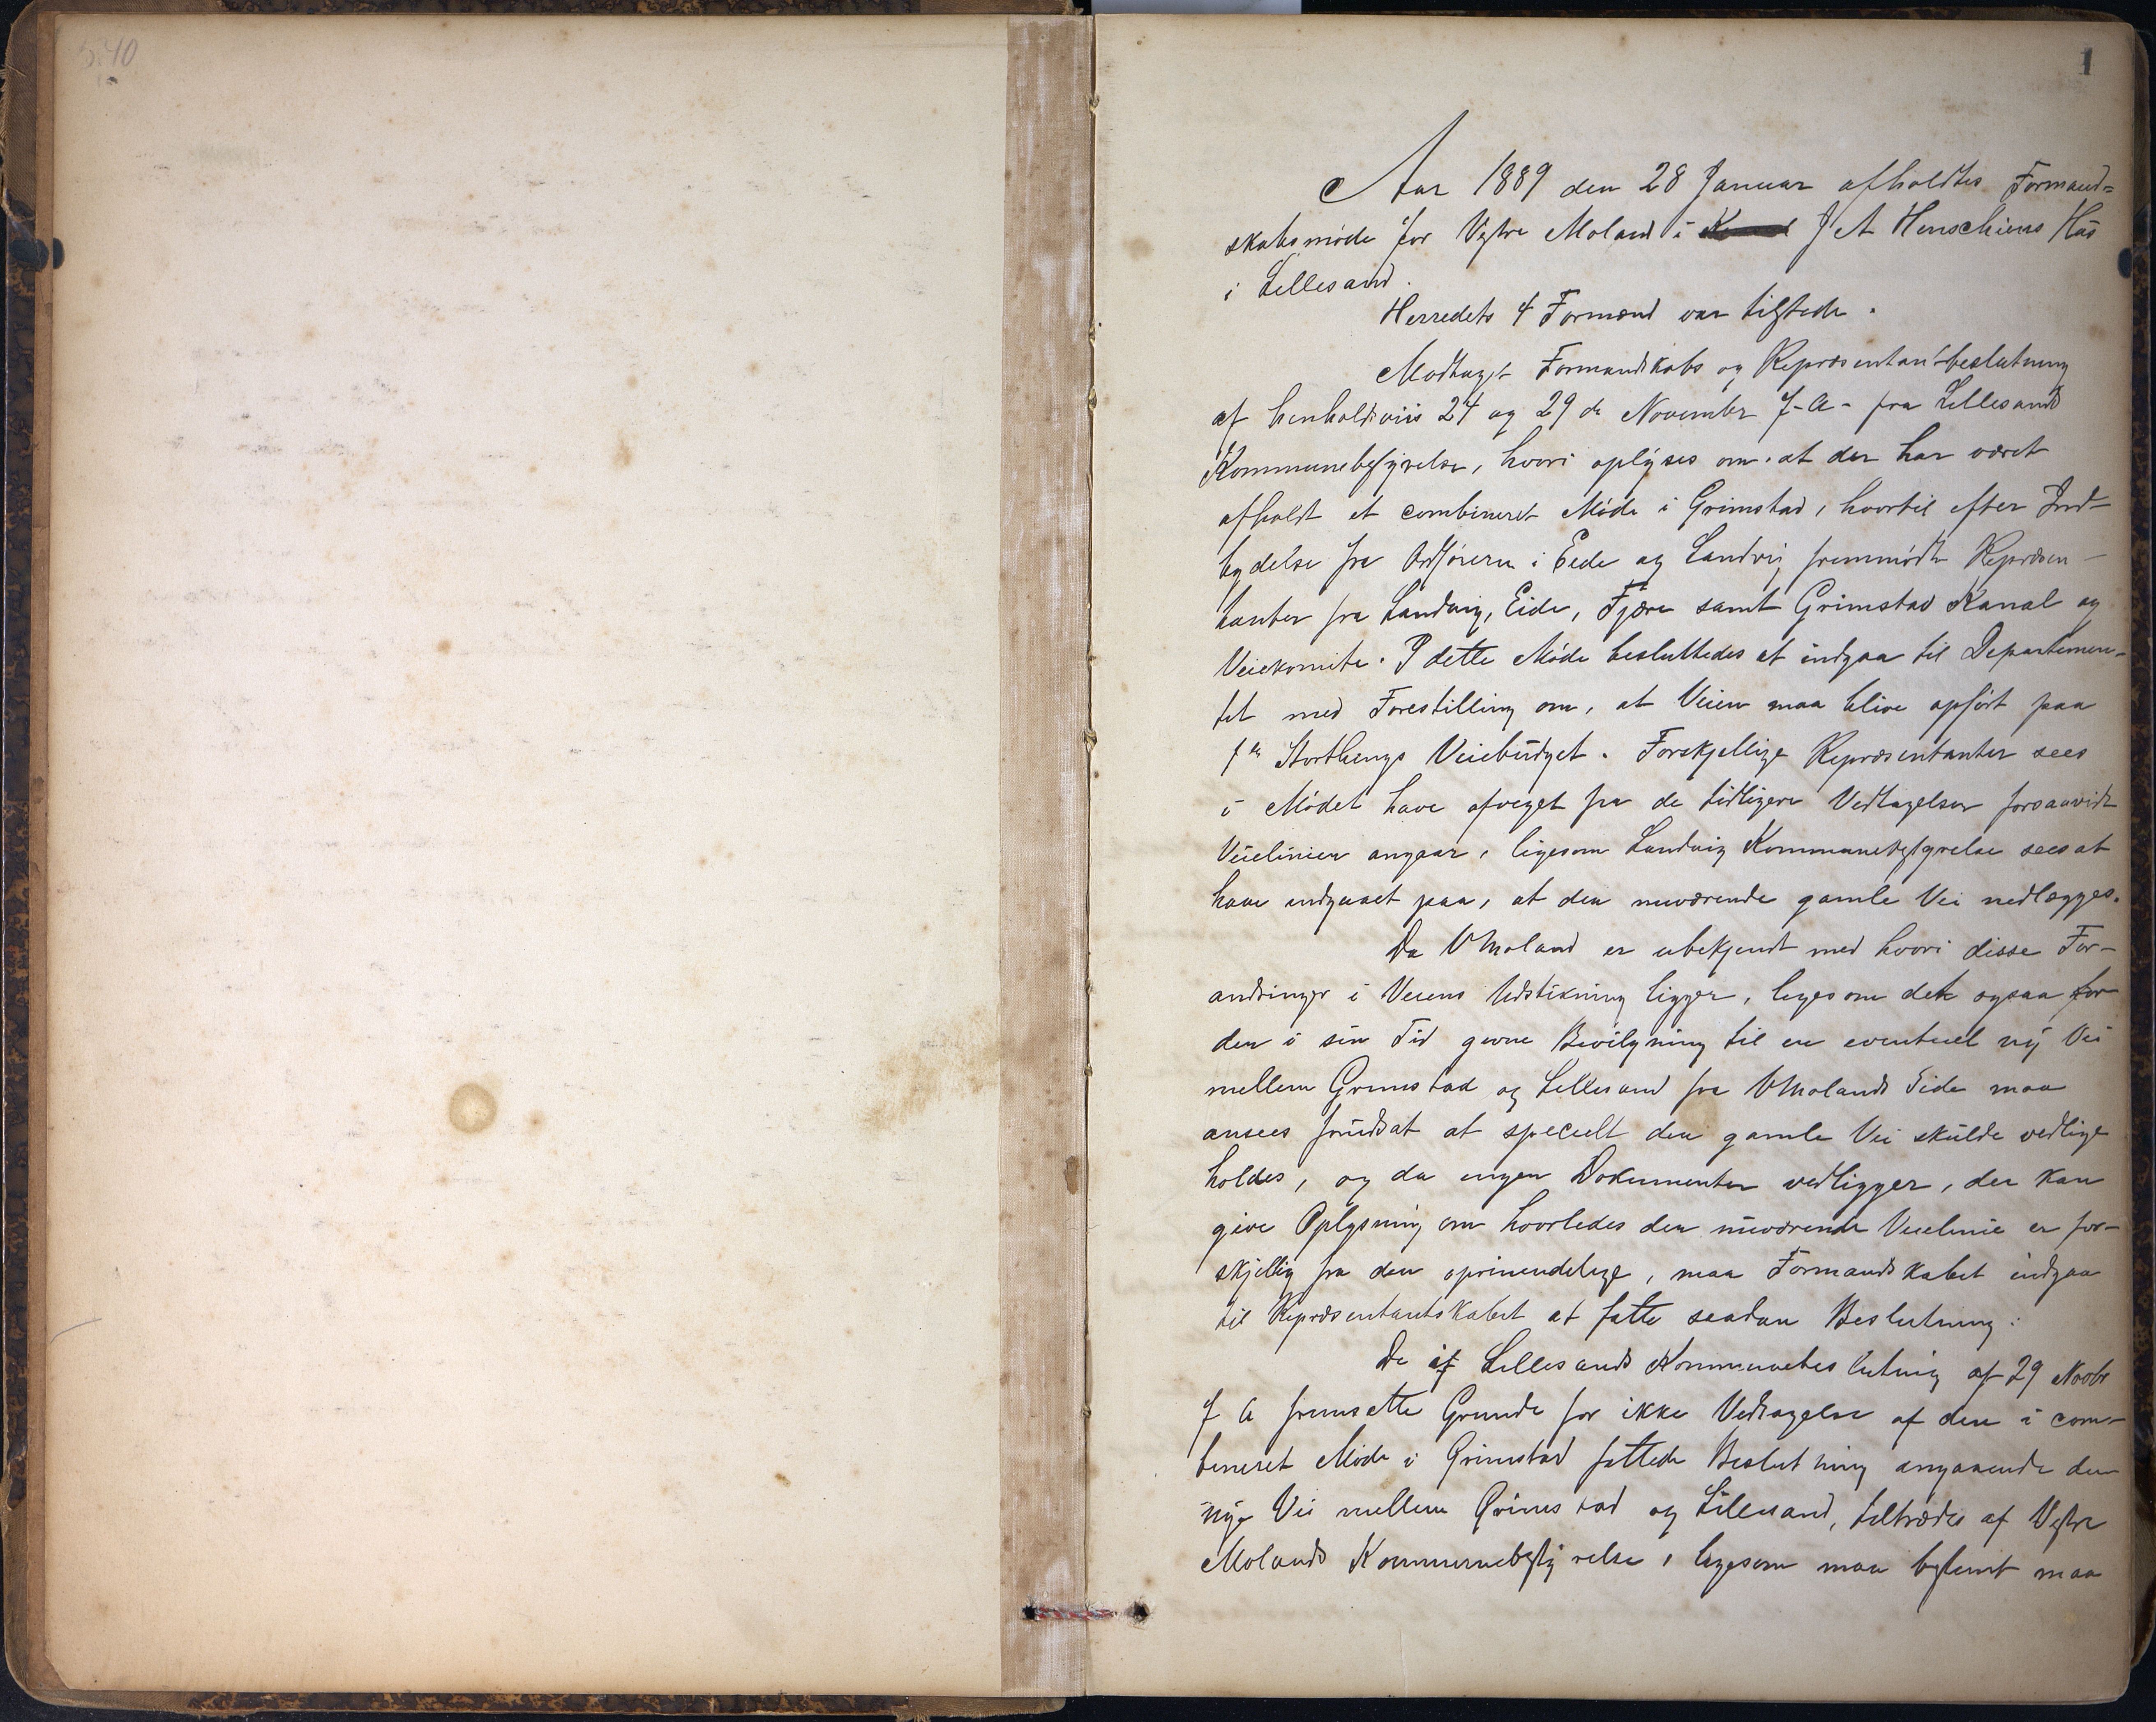 5.40
1
Aar 1889 den 28 Januar afholdtes Formand=
skabsmøde for Vestre Moland i J A Henschiens Hus
i Lillesand.
Herredets 4 Formænd var tilstede.
Modtaget Formandskabs og Repræsentantbeslutning
af henholdsviis 24 og 29 de November f. A. fra Lillesands
Kommunebestyrelse, hvori oplyses om at der har været
afholdt et combineret Møde i Grimstad, hvortil efter Ind-
bydelse fra Ordføreren i Eede og Landvig fremmødte Repræsen-
tanter fra Landvig, Eide, Fjære samt Grimstad Kanal og
Veiekomite. I dette Møde besluttedes at indgaa til Departemen-
tet med Forestilling om, at Veien maa blive opført paa
1ste Storthings Veiebudget. Forskjellige Repræsentanter sees
i Mødet have afveget fra de tidligere Vedtagelser forsaavidt
Veielinien angaar, ligesom Landvig Kommunebestyrelse sees at
have indgaaet paa, at den nuværende gamle Vei nedlægges.
Da V Moland er ubekjendt med hvori disse For-
andringer i Veiens Udstikning ligger, ligesom det ogsaa for
den i sin Tid givne Bevilgning til en eventuel ny Vei
mellem Grimstad og Lillesand fra V Molands Side maa
ansees forudsat at specielt den gamle Vei skulde vedlige
holdes, og da ingen Dokumenter vedligger, der kan
give Oplysning om hvorledes den nuværende Veielinie er for-
skjellig fra den oprinendelige, maa Formandskabet indgaa
til Repræsentantskabet at fatte saadan Beslutning:
De af Lillesands Kommunebeslutning af 29 Novbr
f A fremsatte Grunde for ikke Vedtagelse af den i com-
bineret Møde i Grimstad fattede Beslutning angaaende den
nye Vei mellem Grimstad og Lillesand, tiltrædes af Vestre
Molands Kommunebestyrelse, ligesom man bestemt maa